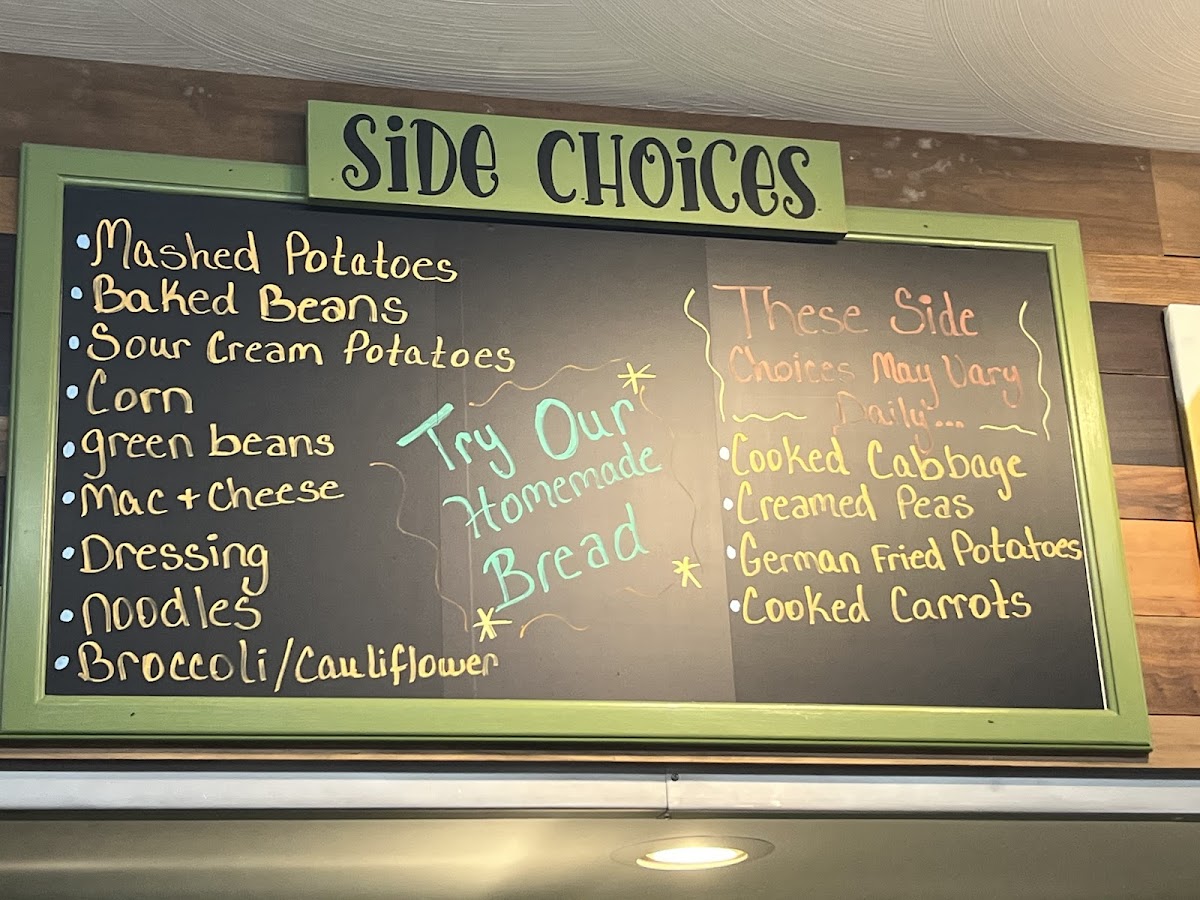 SiDe CHOiCes
•Mashed Potatoes
•Baked Beans
•Sour Cream Potatoes
•Corn
•green beans
•Mac + Cheese
•Dressing
•Noodles
•Broccoli/Cauliflower
Try Our
Homemade
Bread
These Side
Choices May Vary
Daily...
•Cooked Cabbage
•Creamed Peas
•German Fried Potatoes
•Cooked Carrots